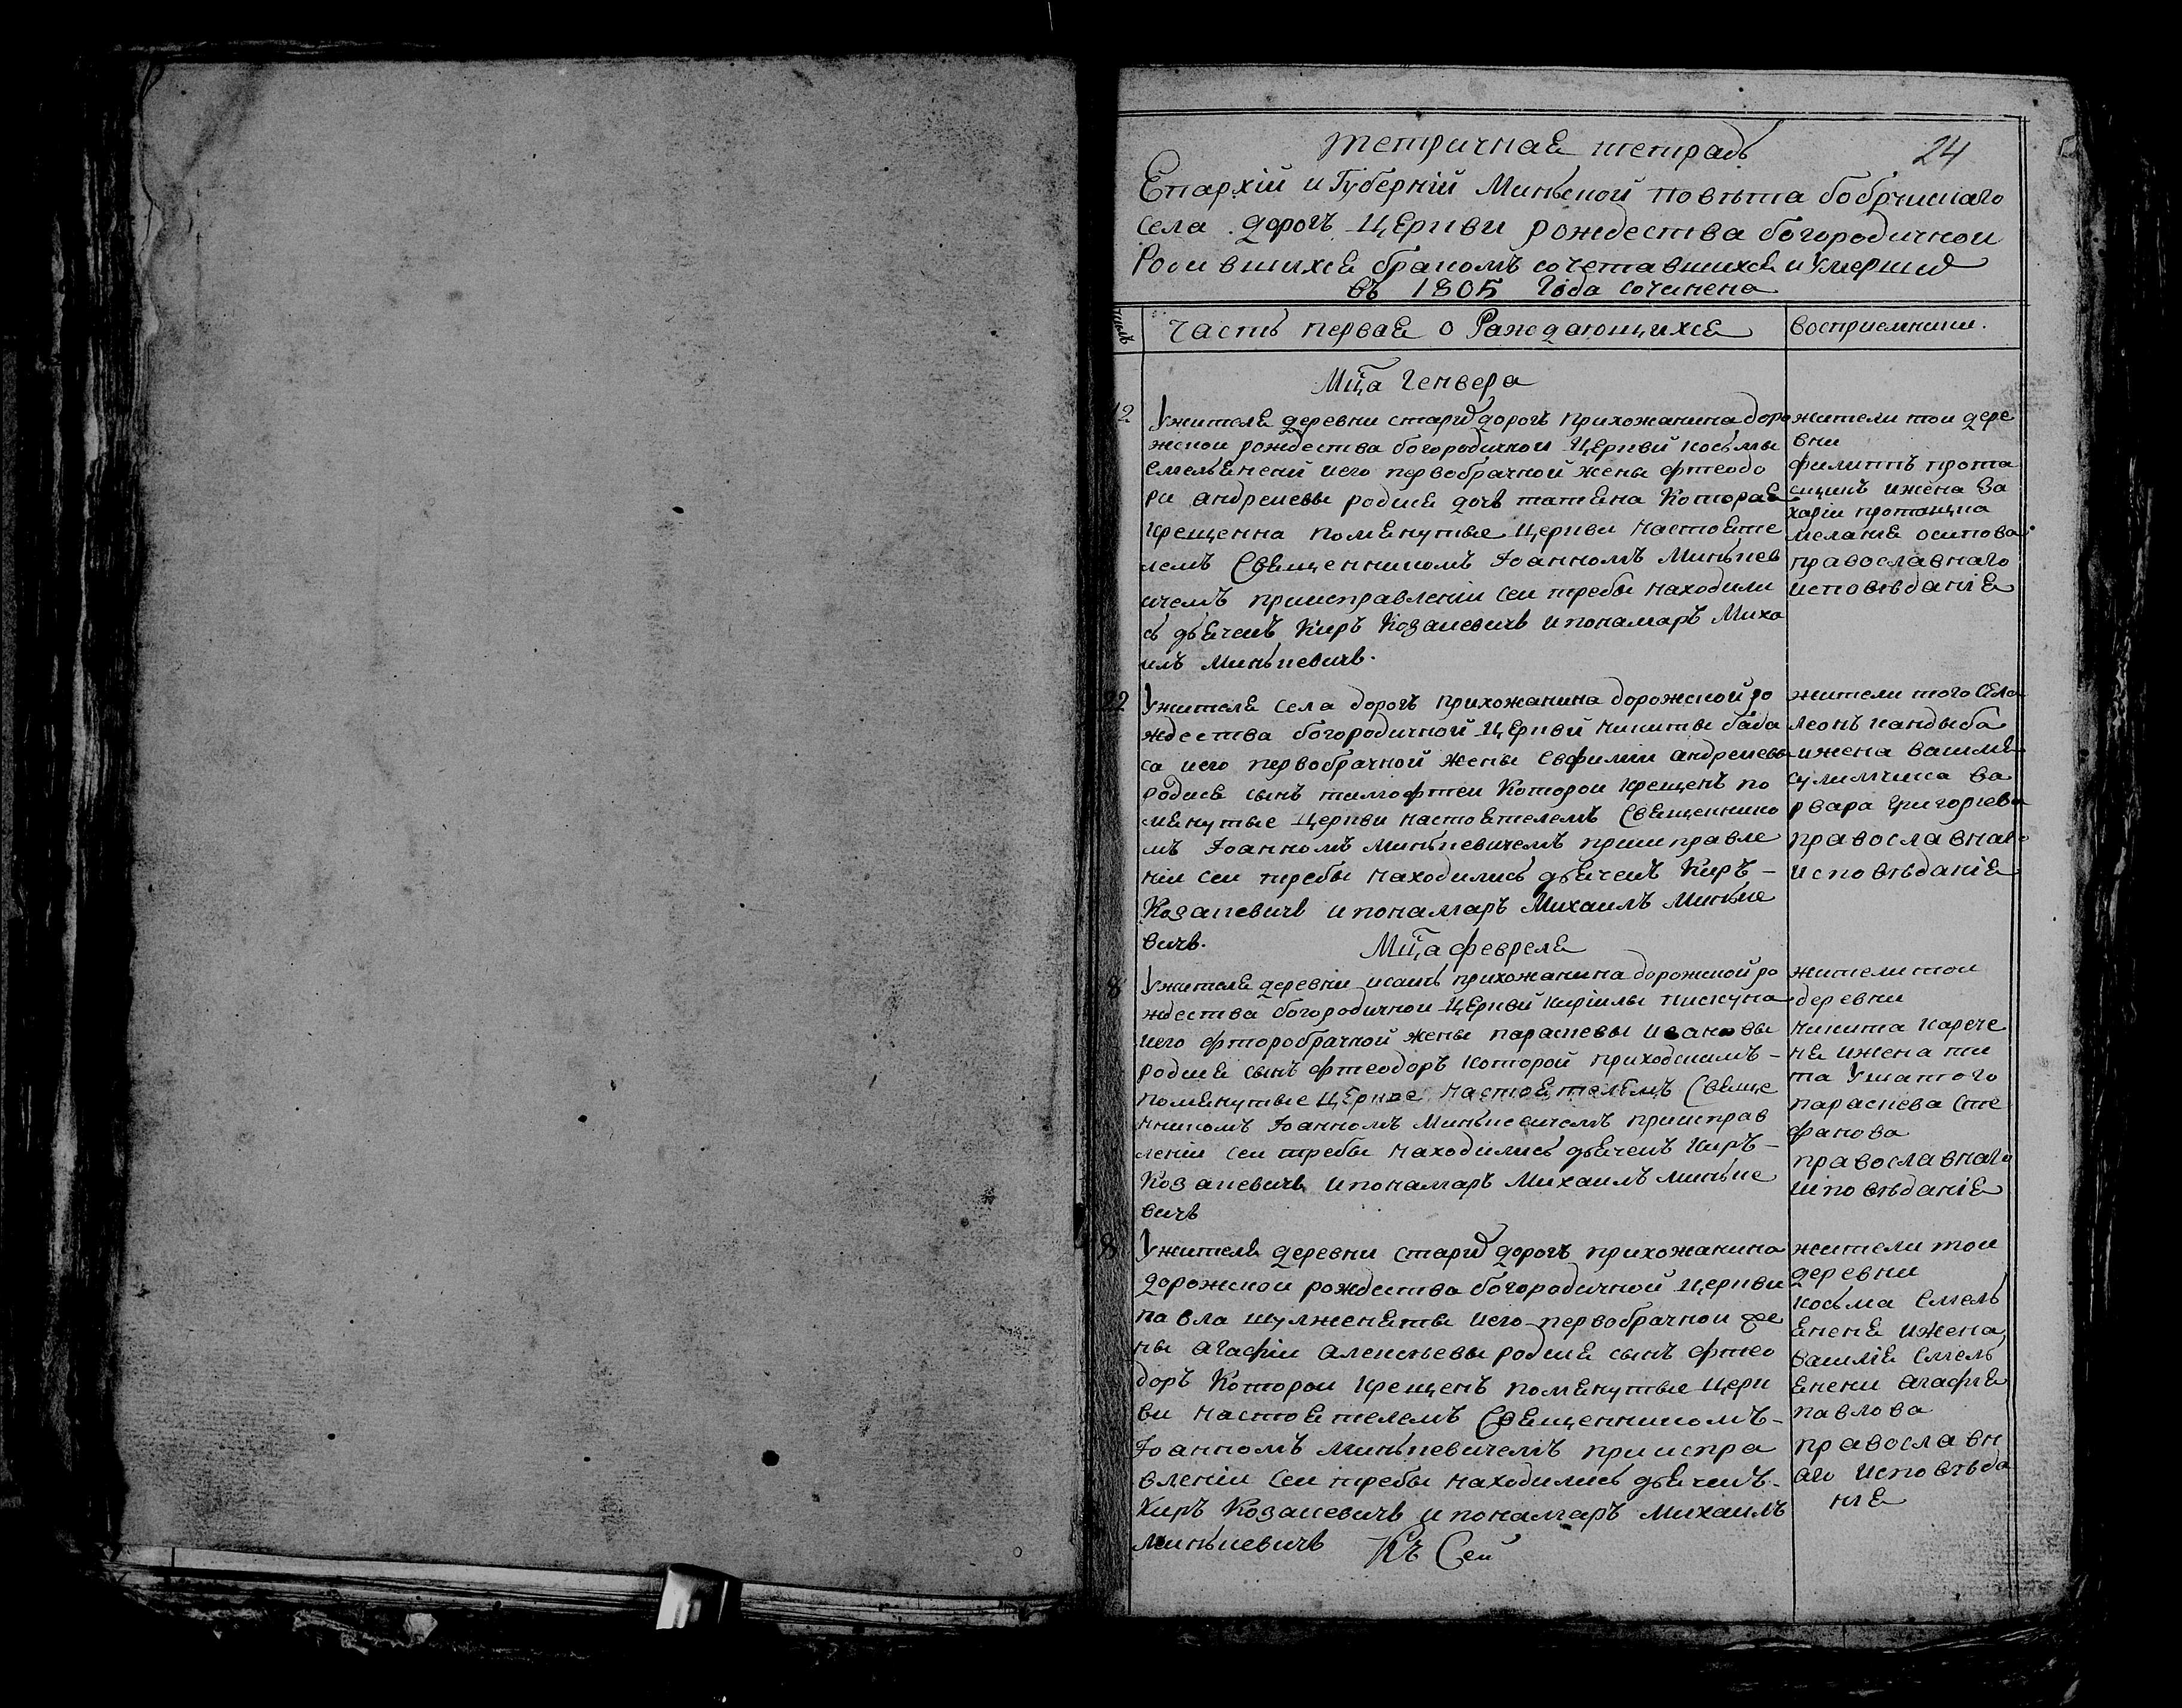 Метричная тетрадь
24
Епархіи и Губерніи Минской повѣта бобруискаго
села дорогъ Церкви рождества богородичнои
Родившихся бракомъ сочетавшихся и умершихъ
въ 1805 Года сочинена
часть первая о Раждающихся
восприемники.
Мца Генверя
12
У жителя деревни старих дорогъ прихожанина доро
жскои рождества богородичнои Церкви косьмы
Емельянски и его первобрачной жены фтеодо
ри андреиевы родися дочь татияна Которая
крещенна помянутыя Церкви настояте
лемъ Священникомъ Иоанномъ Минкев
ичемъ при исправленіи сеи требы находили
сь дьячекъ Киръ Козакевичъ и понамаръ Миха
илъ Минкевичъ.
жители тои дере
вни
филиппъ прота
сицкъ и жена За
харіи протащика
мелания осипова
православнаго
исповѣданія
22
У жителя села дорогъ прихожанина дорожской ро
ждества богородичной Церкви никиты баба
са и его первобрачной жены Евфиміи андреиевы
родися сынъ тимофтеи Которои крещенъ по
мянутыя Церкви настоятелемъ Священнико
мъ Иоанномъ Минкевичемъ при исправле
ніи сеи требы находились дьячекъ Киръ –
Козакевичъ и понамаръ Михаилъ Минке
вичъ.
жители того села
леонъ кандыба
и жена василия
сулимчика ва
рвара Григориева
православнаго
исповѣданія
Мца февреля
8
У жителя деревни исаикъ прихожанина дорожской ро
ждества богородичнои Церкви кирилы пискуна
и его фторобрачной жены параскевы ивановы
родися сынъ фтеодоръ которой приходскимъ –
помянутыя Церкве настоятелемъ Свяще
нникомъ Иоанномъ Минкевичемъ при исправ
леніи сеи требы находились дьячекъ Киръ –
Козакевичъ и понамаръ Михаилъ Минке
вичъ
жители тои
деревни
никита карече
ня и жена ти
та Ушатого
параскева сте
фанова
православнаго
исповѣданія
8
У жителя деревни старих дорогъ прихожанина
дорожскои рождества богородичной Церкви
павла шулженяты и его первобрачнои же
ны агафіи алексѣевы родися сынъ фтео
доръ Которои крещенъ помянутыя Церк
ви настоятелемъ Священникомъ –
Иоанномъ Минкевичемъ при испра
вленіи сеи требы находились дьячекъ –
Киръ Козакевичъ и понамаръ Михаилъ
минкиевичъ
Къ Сеи
жители тои
деревни
косьма Емель
яненя и жена
василія Емель
янени агафія
павлова
православн
аго исповѣда
нія